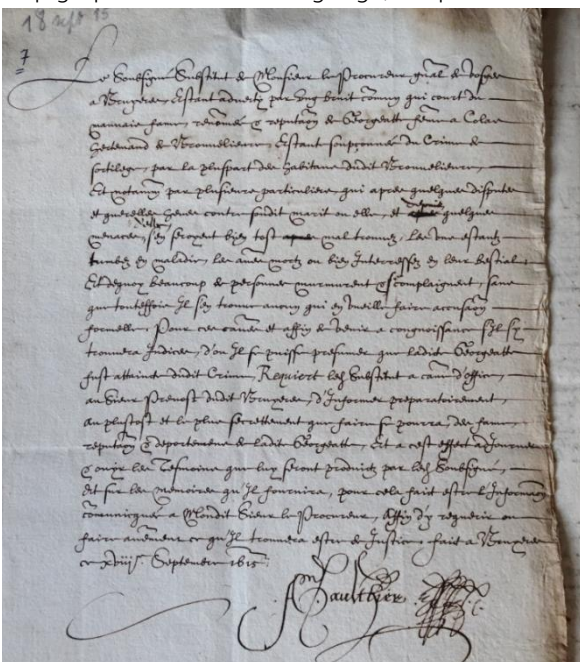 18 sept 15
7
Le Soubsigné Substitut de Monsieur le Procureur gnal de Vosges
a Bruyeres, Estant adverty par ung bruit comun qui court du
mauvais fame, renomee & reputaon de Georgeatte femme a Colas
de Brouvelieures, Estant soupçonnee du Crime de
sortilege, par la pluspart des habitans dudit Brouvelieures,
Et notamment par plusieurs particuliers, qui apres quelques disputes
et querelles heues contre sondit marit ou elle, et depuis quelques
menaces, s'en seroyent bien tost mal trouvez, les uns estans
tumbez en maladie, les autres mortz ou bien Interressez en leur bestial
Et dequoy beaucoup de personnes murmurent & se complaignent, sans
que touteffois Il s'en trouve aucun qui en veuille faire accusaon
formelle, Pour ces causes et affin de venir a congnoissance s'Il s'y
trouvera Indices, d'ou Il se puisse presumer que ladite Georgeatte
fust attainte dudit Crime, Requiert led Substitut a cause d'office,
au Sieur Prevost dudit Bruyeres, d'Informer preparatoirement,
au plustost et le plus secrettement que faire se pourra, des fame,
reputaon & deportemens de ladite Georgeatte, Et a cest effect adjourner
& ouyr les Tesmoins que luy seront produictz par led Soubsigné,
Et sur les memoires qu'Il fournira, pour cela faict estre l'Informaon
communicquee a Mondit Sieur le Procureur, Affin d'y requerir ou
faire aultrement ce qu'Il trouvera estre de Justice, fait a Bruyeres
ce xviij.e Septembre 1615
Gaulthier